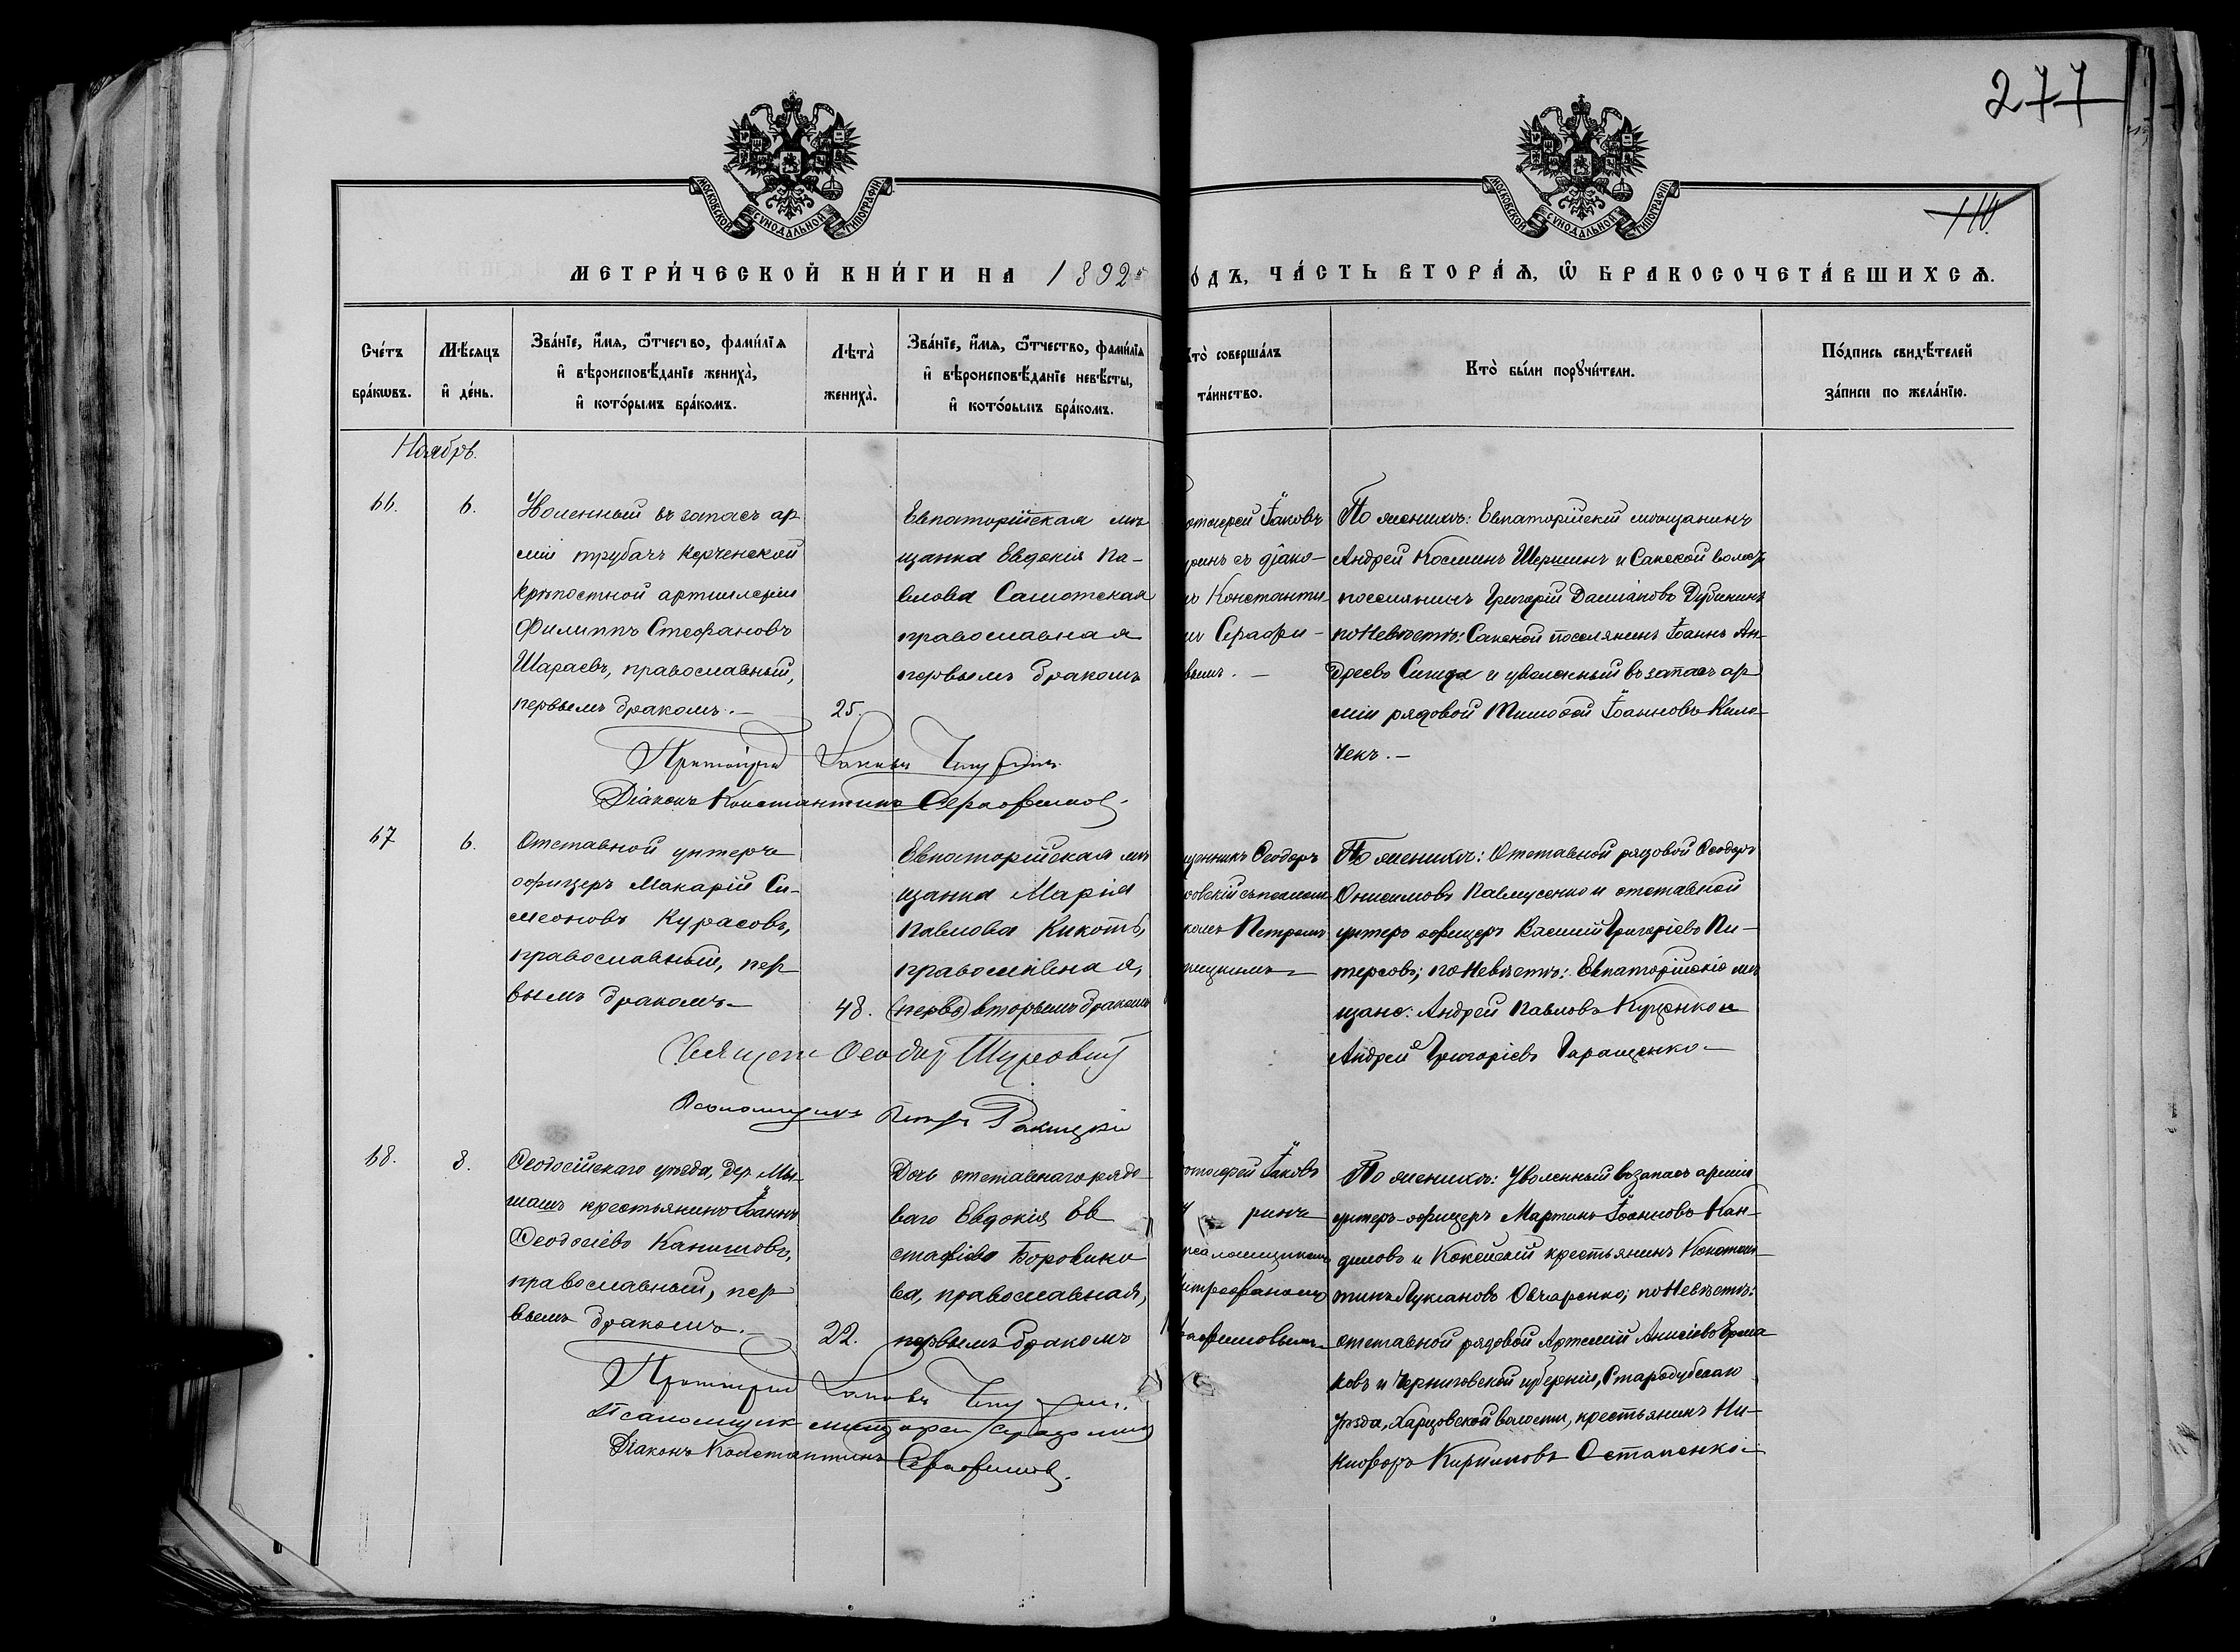 277
110.
МОСКОВСКОЙ СѴНОДАЛЬНОЙ ТИПОГРАФІИ
МОСКОВСКОЙ СѴНОДАЛЬНОЙ ТИПОГРАФІИ
МЕТРИ́ЧЕСКОЙ КНИ́ГИ НА 1892й
О́ДЪ, ЧА́СТЬ ВТОРА́Ѧ, Ѿ БРАКОСОЧЕТА́ВШИХСѦ.
Сче́тъ бра́кѡвъ.
Мѣ́сяцъ и҆ де́нь.
Зва́нїе, и҆́мя, ѻ҆́тчество, фами́лїя
и҆ вѣроисповѣ́данїе жениха̀,
и҆ кото́рымъ бра́комъ.
Лѣта̀ жениха̀.
Зва́нїе, и҆́мя, ѻ҆́тчество, фами́лїя
и҆ вѣроисповѣ́данїе невѣ́сты,
и҆ кото́рымъ бра́комъ.
Кто̀ соверша́лъ
та́инство.
Кто̀ бы́ли порꙋчи́тели.
По́дпись свидѣ́телей
за́писи по жела́нїю.
Ноябрь.
66.
6.
Уволенный въ запасъ ар
міи трубачъ Керченской
крѣпостной артиллеріи
Филиппъ Стефановъ
Шараевъ, православный,
первымъ бракомъ.—
25
Евпаторійская мѣ
щанка Евдокія Па-
влова Самотская
православная
первымъ бракомъ
отоіерей Іаковъ
ринъ съ діако-
Константи
Серафи-
вымъ.—
По женихѣ: Евпаторійскій мѣщанинъ
Андрей Косминъ Шершинъ и Сакской волос
поселянинъ Григорій Даміановъ Дубининъ
по Невѣстѣ: Сакской поселянинъ Іоаннъ Ан-
дреевъ Сигида и уволенный въ запасъ ар
міи рядовой Тимоѳей Іоанновъ Кило-
чекъ.—
Протоіерей Іаковъ Чепуринъ
Діаконъ Константинъ Серафимовъ.
67
6.
Отставной унтеръ
офицеръ Макарій Си-
меоновъ Курасовъ,
православный, пер
вымъ бракомъ—
48.
Евпаторійская мѣ
щанка Марія
Павлова Кикоть,
православная,
(первы) вторымъ бракомъ
щенникъ Ѳеодоръ
ровскій съ псаломщи
комъ Петромъ
кицкимъ—
По женихѣ: Отставной рядовой Ѳеодоръ
Онисимовъ Павлусенко и отставной
унтеръ офицеръ Василій Григоріевъ Пи-
терсовъ; по Невѣстѣ: Евпаторійскіе мѣ
щане: Андрей Павловъ Куценко и
Андрей Григоріевъ Таращенко—
Священ Ѳеодоръ
Псаломщикъ Петръ Ракицкій
68.
8.
Ѳеодосійскаго уѣзда, дер. Мы-
шашъ крестьянинъ Іоаннъ
Ѳеодосіевъ Канишовъ,
православный, пер
вымъ бракомъ.—
22.
Дочь отставнаго рядо
ваго Евдокія Ев
стафіева Боровико
ва, православная,
первымъ бракомъ
отоіерей Іаковъ
ринъ
псаломщикомъ
итрофаномъ
рафимовымъ—
По женихѣ: Уволенный въ запасъ арміи
унтеръ-офицеръ Мартинъ Іоанновъ Кан-
диловъ и Кокейскій крестьянинъ Констан
тинъ Лукіановъ Овчаренко; по Невѣстѣ:
отставной рядовой Артемій Анисіевъ Ерма
ковъ и Черниговской губерніи, Стародубскаго
уѣзда, Харцовской волости, крестьянинъ Ни-
кифоръ Кирилловъ Остапенко—
Протоіерей Іаковъ Чепуринъ.
Псаломщик Митрофан Серафимов
Діаконъ Константинъ Серафимовъ.